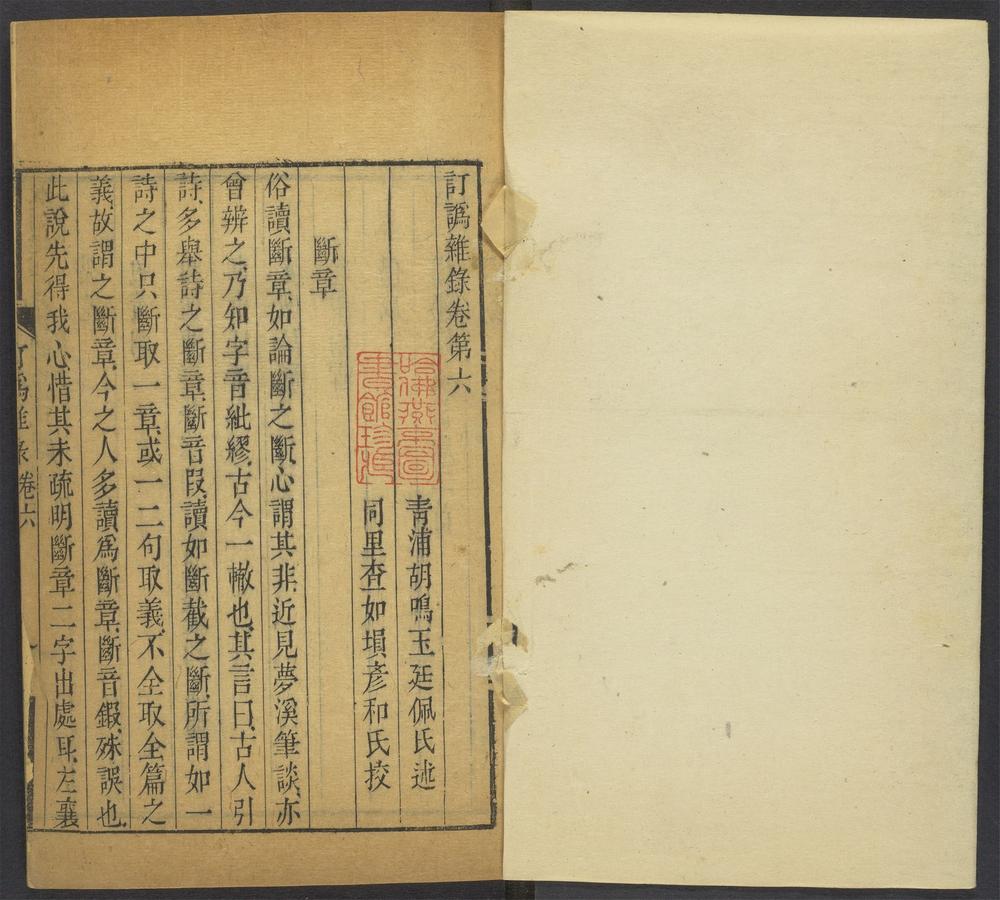 訂譌雜錄卷第六
青浦胡鳴玉廷佩氏述
同里查如塤彥和氏挍
哈佛燕京圖
書館珍藏
斷章
俗讀斷章、如論斷之斷、心謂其非、近見夢溪筆談、亦
曾辨之、乃知字音紕繆、古今一轍也、其言曰、古人引
詩、多舉詩之斷章、斷音段、讀如斷截之斷、所謂如一
詩之中、只斷取一章、或一二句取義、不全取全篇之
義、故謂之斷章、今之人多讀爲斷章、斷音鍛、殊誤也、
此說先得我心、惜其未疏明斷章二字出處耳、左襄
訂譌雜錄卷六
一